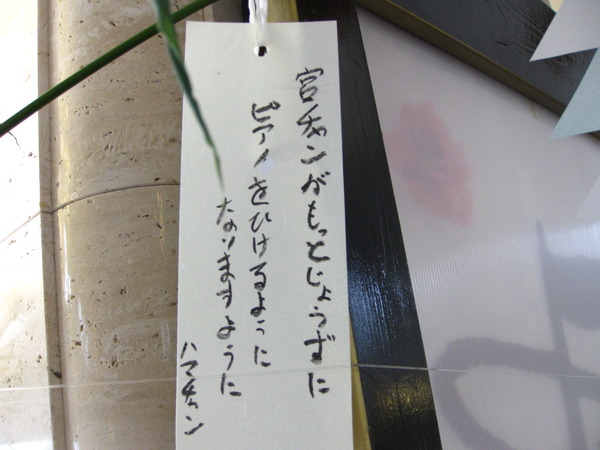 宮チャンがもっとじょうずに
ピアノをひけるように
なりますように
ハマチャン